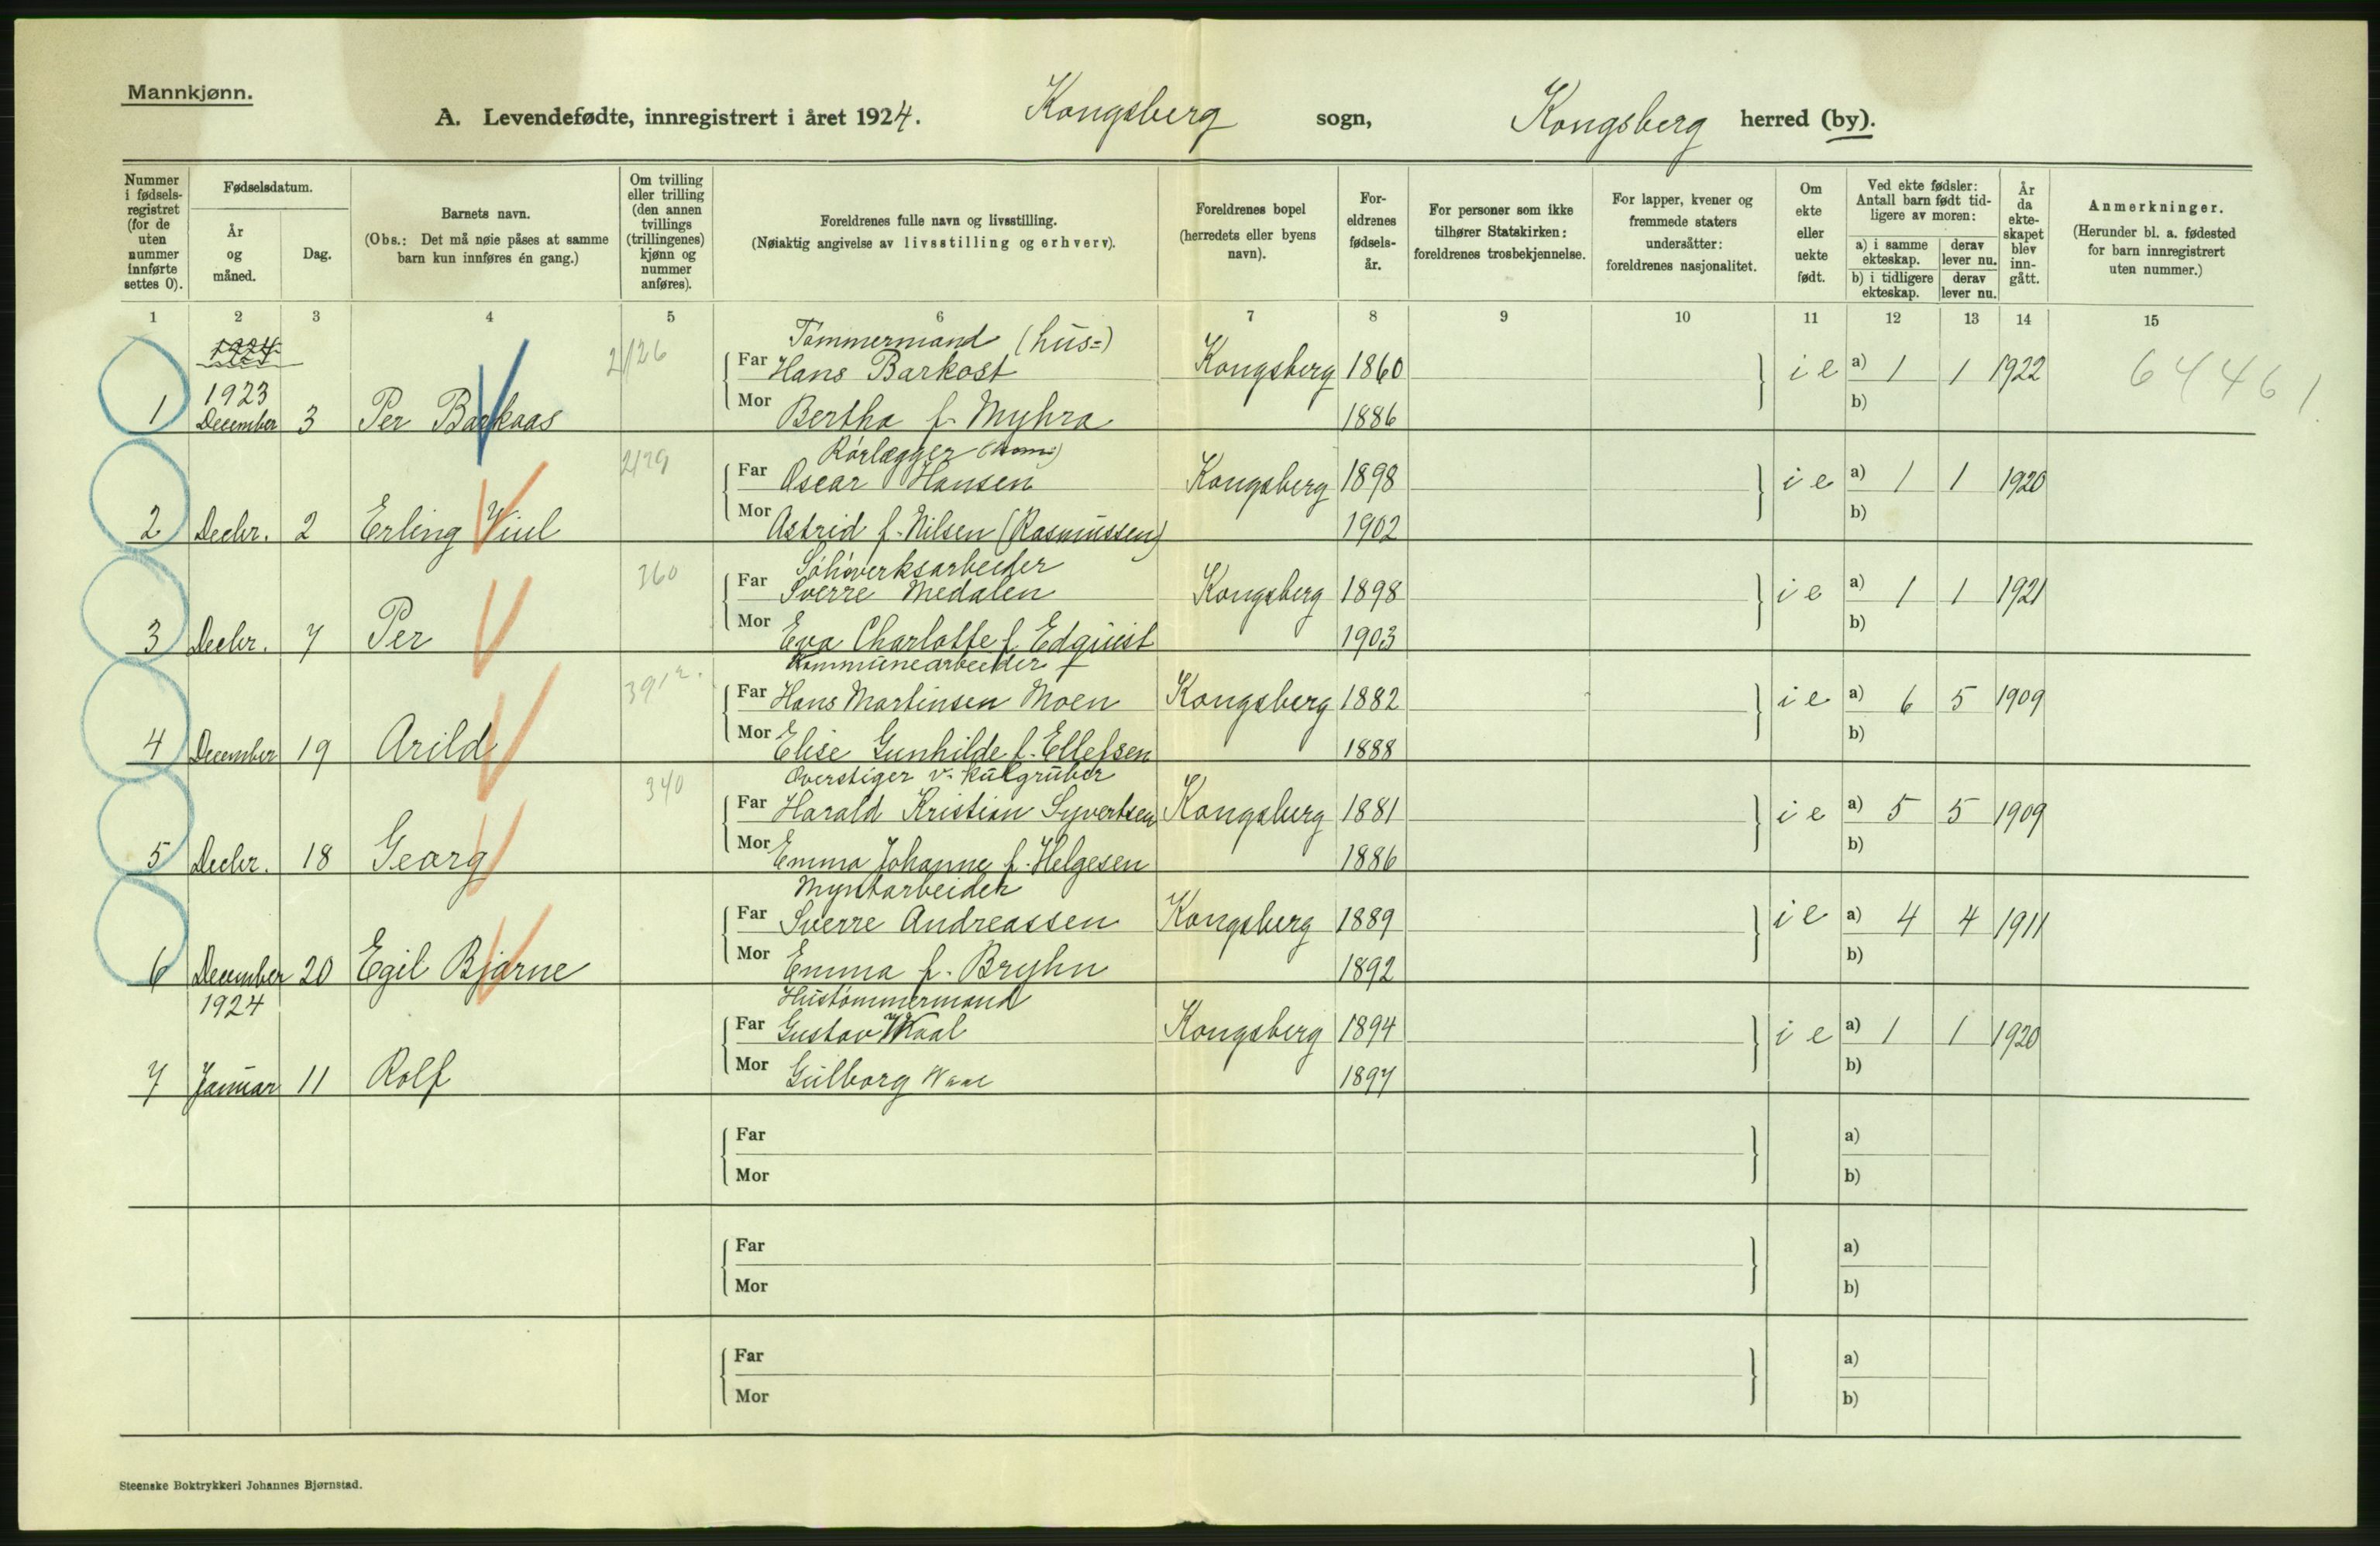 Mannkjønn.
A. Levendefødte, innregistrert i året 1924. Kongsberg sogn, Kongsberg herred (by).
Nummer i fødsels-registret (for de uten nummer innførte settes 0).
Fødselsdatum.
År og måned.
Dag.
Barnets navn.
(Obs.: Det må nøie påses at samme barn kun innføres én gang.)
Om tvilling eller trilling (den annen tvillings (trillingenes) kjønn og nummer anføres).
Foreldrenes fulle navn og livsstilling.
(Nøiaktig angivelse av livsstilling og erhverv).
Foreldrenes bopel (herredets eller byens navn).
For-eldrenes fødsels-år.
For personer som ikke tilhører Statskirken: foreldrenes trosbekjennelse.
For lapper, kvener og fremmede staters undersåtter: foreldrenes nasjonalitet.
Om ekte eller uekte født.
Ved ekte fødsler: Antall barn født tid-ligere av moren:
a) i samme ekteskap. derav lever nu.
b) i tidligere ekteskap. derav lever nu.
År da ekte-skapet blev inn-gått.
Anmerkninger.
(Herunder bl. a. fødested for barn innregistrert uten nummer.)
1 2 3 4 5 6 7 8 9 10 11 12 13 14 15
1924
Tømmermand (hus=)
2126 Far Hans Barkost Kongsberg 1860 i e a) 1 1 1922 64461
1923
1 December 3 Per Barkaas Mor Bertha f. Myhra 1886 b)
Rörlægger
Far Oscar Hansen Kongsberg 1898 i e a) 1 1 1920
2 Decbr. 2 Erling Viul Mor Astrid f. Nilsen (Rasmussen) 1902 b)
Sölvverksarbeider
360 Far Sverre Medalen Kongsberg 1898 i e a) 1 1 1921
3 Decbr. 7 Per Mor Eva Charlotte f. Edquist 1903 b)
Kommunearbeider
Far Hans Martinsen Moen Kongsberg 1882 i e a) 6 5 1909
4 December 19 Arild Mor Elise Gunhilde f. Ellefsen 1888 b)
Overstiger v. kulgruber
340 Far Harald Kristian Syvertsen Kongsberg 1881 i e a) 5 5 1909
5 Decbr. 18 Georg Mor Emma Johanne f. Helgesen 1886 b)
Myntarbeider
Far Sverre Andreassen Kongsberg 1889 i e a) 4 4 1911
6 December 20 Egil Bjarne Mor Emma f. Bryhn 1892 b)
1924 Hustömmermand
Far Gustav Waal Kongsberg 1894 i e a) 1 1 1920
7 Januar 11 Rolf Mor Gulborg Waal 1897 b)
Far a)
Mor b)
Far a)
Mor b)
Far a)
Mor b)
Steenske Boktrykkeri Johannes Bjørnstad.